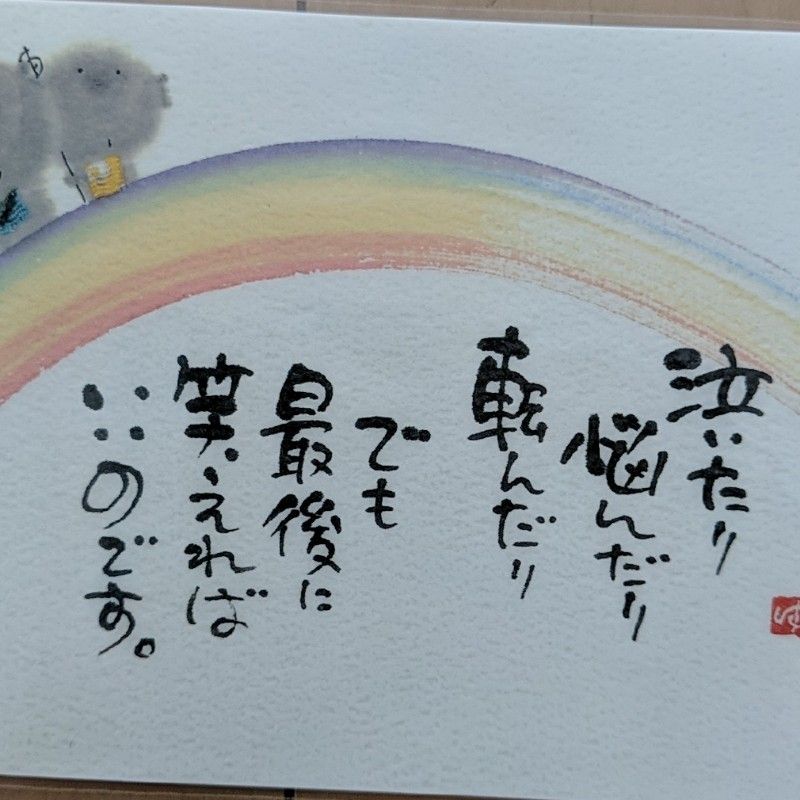 泣いたり
悩んだり
転んだり
でも
最後に
笑えれば
いいのです。
ゆ